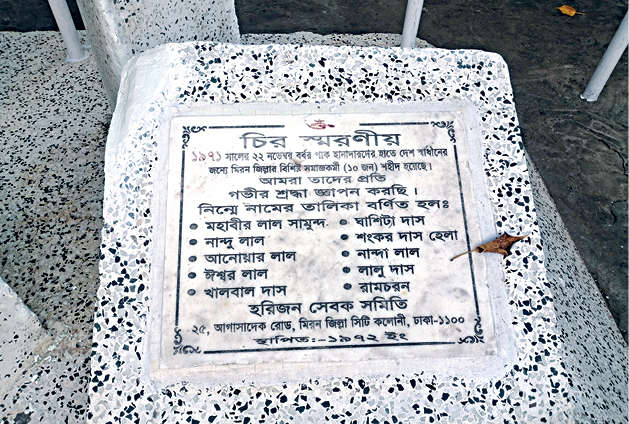 ॐ
চির স্মরণীয়
১৯৭১ সালের ২২ নভেম্বর বর্বর পাক হানাদারদের হাতে দেশ স্বাধীনের
জন্যে মিরন জিল্লার বিশিষ্ট সমাজকর্মী (১০ জন) শহীদ হয়েছে।
আমরা তাদের প্রতি
গভীর শ্রদ্ধা জ্ঞাপন করছি।
নিম্মে নামের তালিকা বর্ণিত হলঃ
• মহাবীর লাল সামুন্দ
• নান্দু লাল
• আনোয়ার লাল
• ঈশ্বর লাল
• খালবাল দাস
• ঘাশিটা দাস
• শংকর দাস হেলা
• নান্দা লাল
• লালু দাস
• রামচরন
হরিজন সেবক সমিতি
২৫, আগাসাদেক রোড, মিরন জিল্লা সিটি কলোনী, ঢাকা-১১০০
স্থাপিতঃ-১৯৭২ ইং